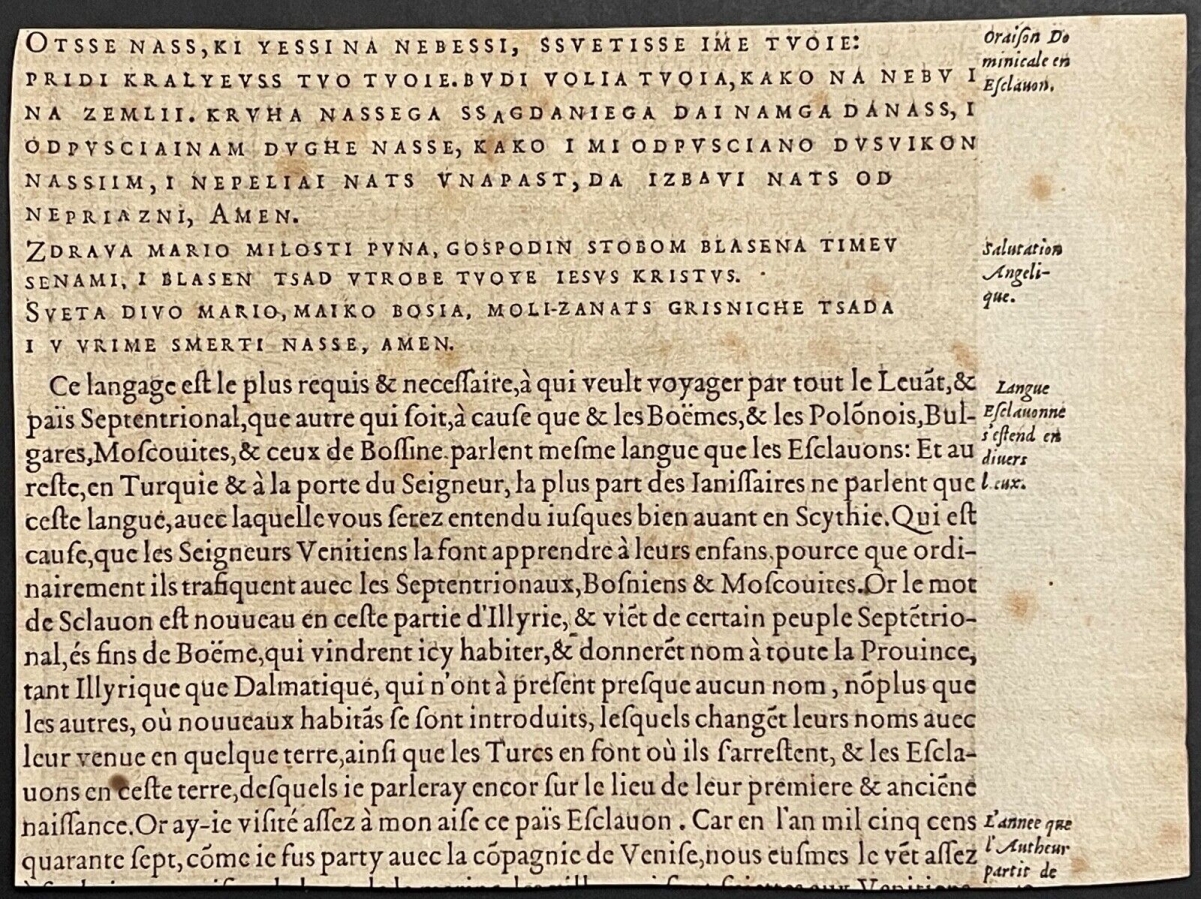 OTSSE NASS, KI YESSI NA NEBESSI, SSVETISSE IME TVOIE:
PRIDI KRALYEVSS TVO TVOIE. BVDI VOLIA TVOIA, KAKO NA NEBV I
NA ZEMLII. KRVHA NASSEGA SSAGDANIEGA DAI NAMGA DANASS, I
ODPVSCIAINAM DVGHE NASSE, KAKO I MI ODPVSCIANO DVSVIKON
NASSIIM, I NEPELIAI NATS VNAPAST, DA IZBAVI NATS OD
NEPRIAZNI, AMEN.
Oraiſon Do
minicale en
Eſclauon.
ZDRAVA MARIO MILOSTI PVNA, GOSPODIN STOBOM BLASENA TIMEV
SENAMI, I BLASEN TSAD VTROBE TVOYE IESVS KRISTVS.
SVETA DIVO MARIO, MAIKO BOSIA, MOLI-ZANATS GRISNICHE TSADA
I V VRIME SMERTI NASSE, AMEN.
Salutation
Angeli-
que.
Ce langage eſt le plus requis & neceſſaire, à qui veult voyager par tout le Leuāt, &
païs Septentrional, que autre qui ſoit, à cauſe que & les Boëmes, & les Polōnois, Bul-
gares, Moſcouites, & ceux de Boſſine parlent meſme langue que les Eſclauons: Et au
reſte, en Turquie & à la porte du Seigneur, la plus part des Ianiſſaires ne parlent que
ceſte langue, auec laquelle vous ſerez entendu iuſques bien auant en Scythie. Qui eſt
cauſe, que les Seigneurs Venitiens la font apprendre à leurs enfans, pource que ordi-
nairement ils trafiquent auec les Septentrionaux, Boſniens & Moſcouites. Or le mot
de Sclauon eſt nouueau en ceſte partie d'Illyrie, & viēt de certain peuple Septētrio-
nal, és fins de Boëme, qui vindrent icy habiter, & donnerēt nom à toute la Prouince,
tant Illyrique que Dalmatique, qui n'ont à preſent preſque aucun nom, nōplus que
les autres, où nouueaux habitās ſe ſont introduits, leſquels changēt leurs noms auec
leur venue en quelque terre, ainſi que les Turcs en font où ils ſ'arreſtent, & les Eſcla-
uons en ceſte terre, deſquels ie parleray encor ſur le lieu de leur premiere & anciēne
naiſſance. Or ay-ie viſité aſſez à mon aiſe ce païs Eſclauon. Car en l'an mil cinq cens
quarante ſept, cōme ie fus party auec la cōpagnie de Veniſe, nous euſmes le vēt aſſez
Langue
Eſclauonne
s'eſtend en
diuers
lieux.
L'annee que
l'Autheur
partit de